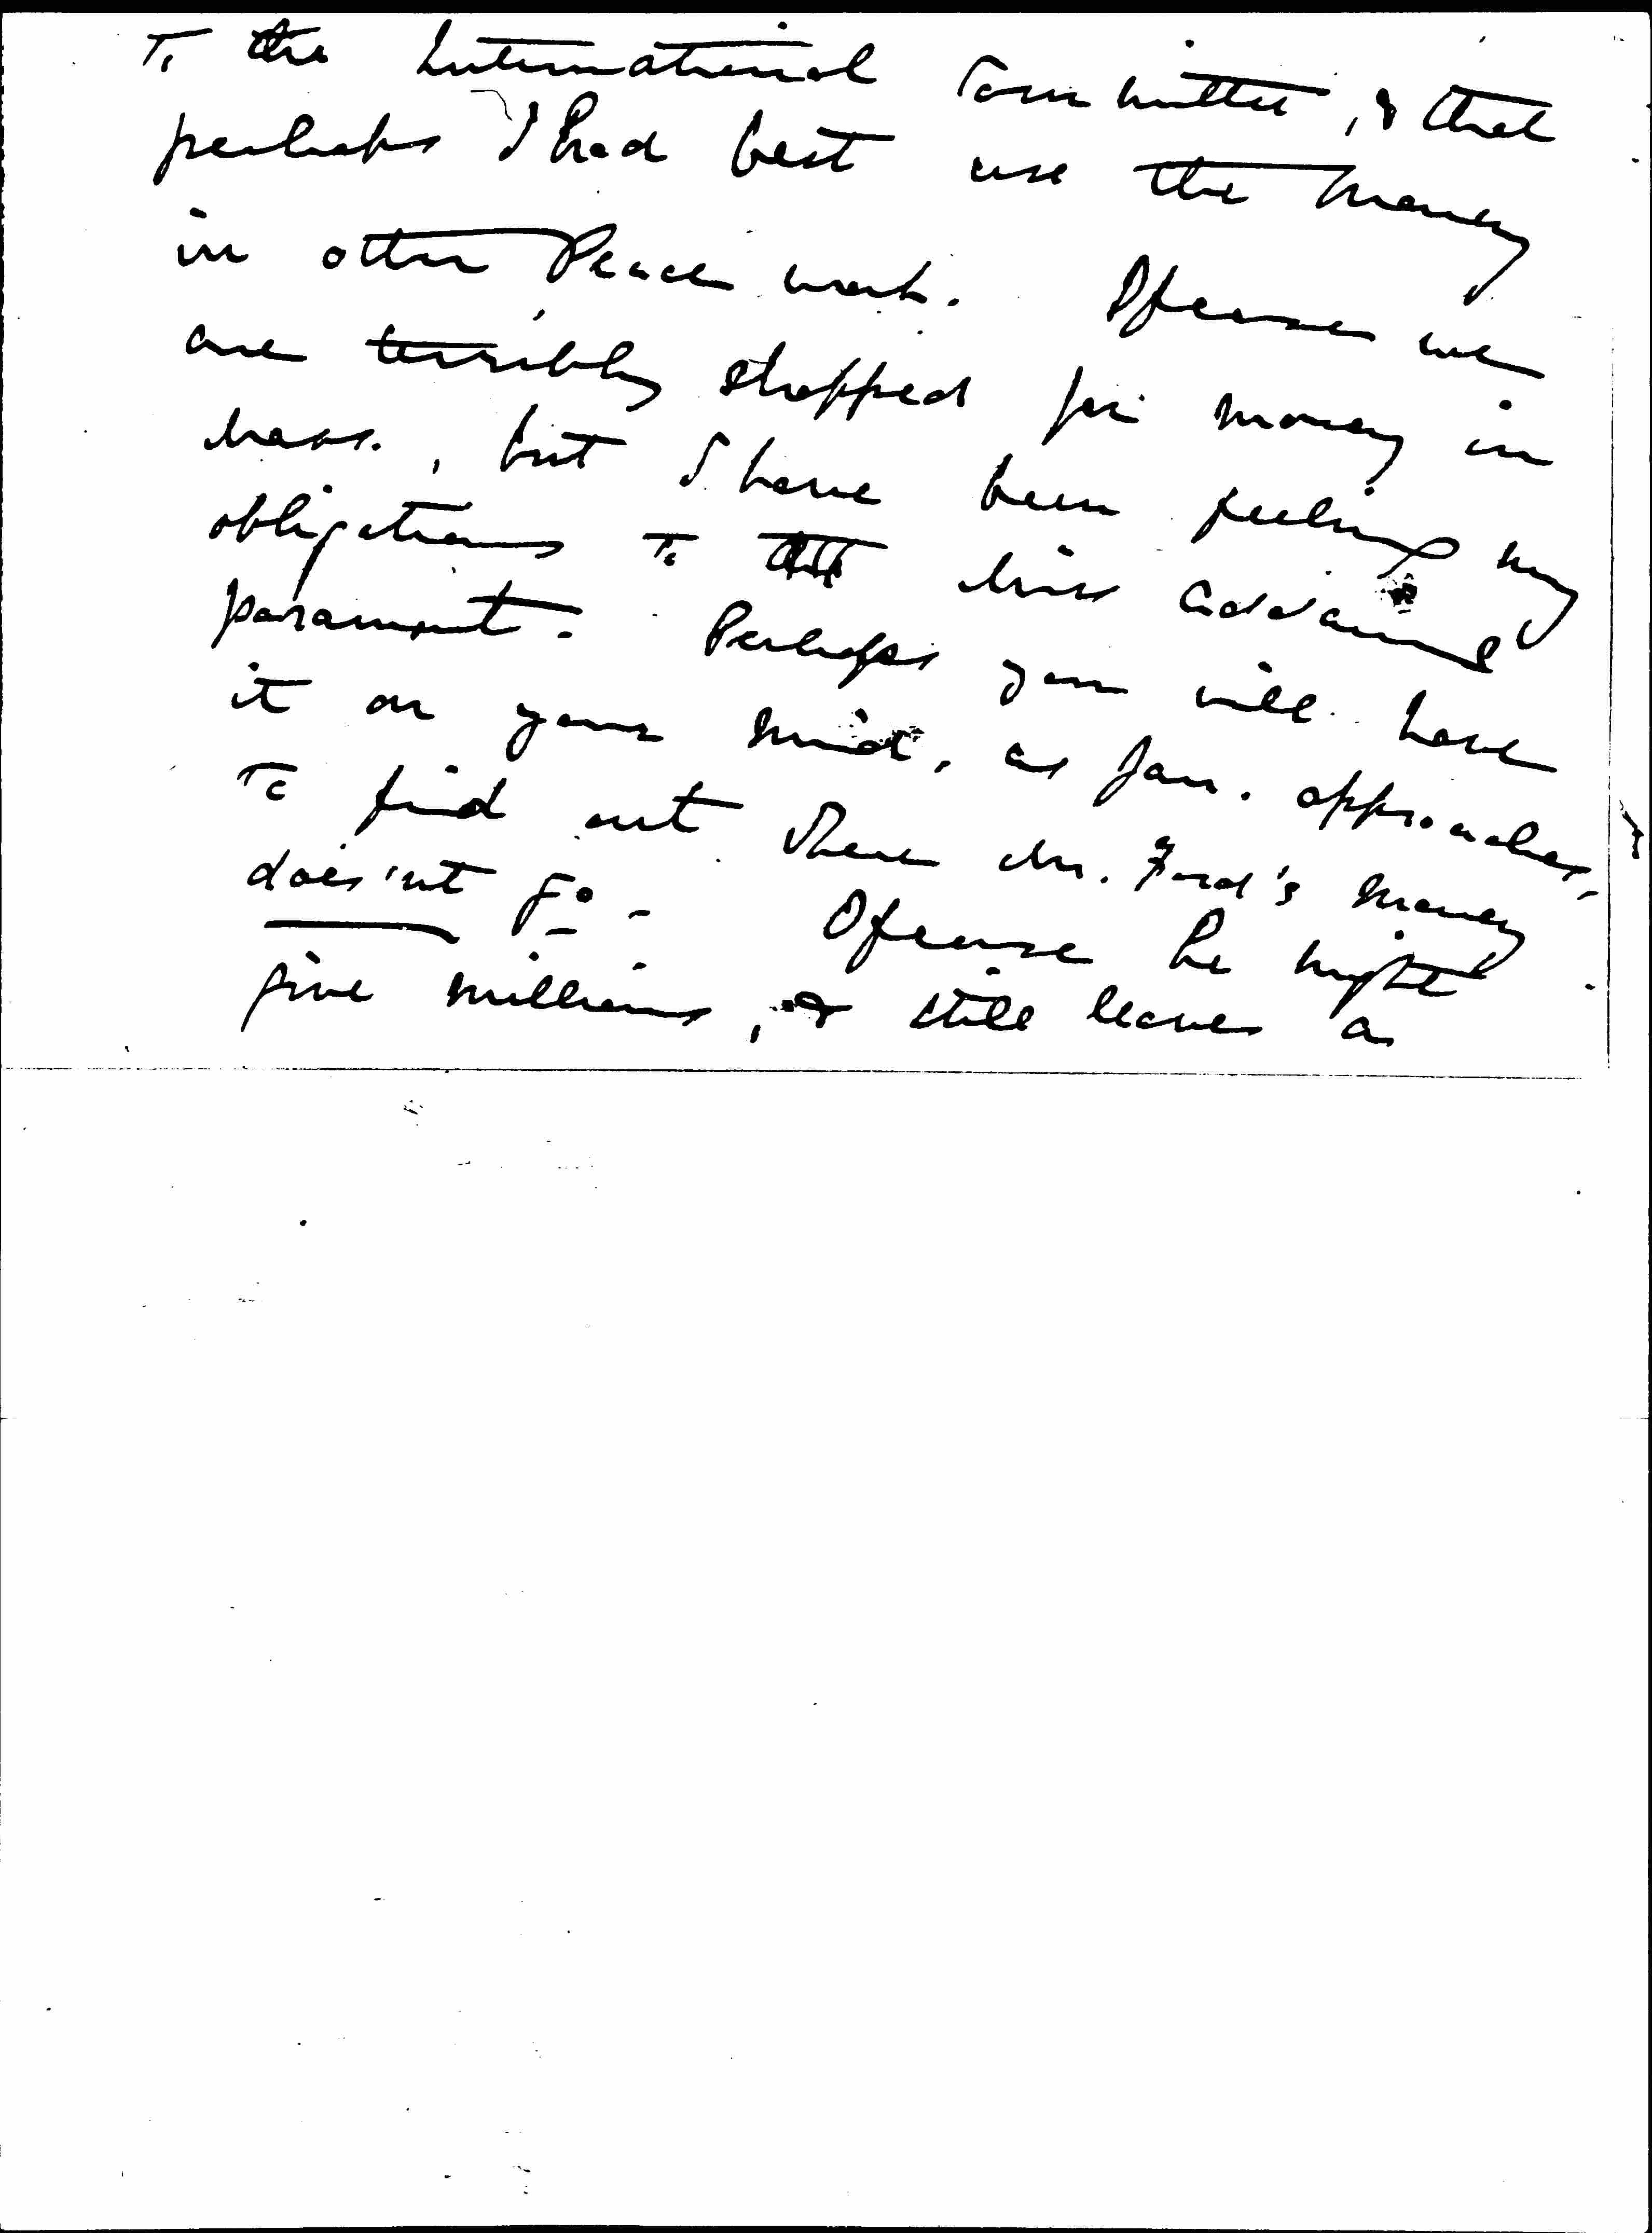 To the International Committee, & that
perhaps I had best use the money
in other Peace work. Of course we
are terribly strapped for money in
Mass., but I have been feeling my
obligations to Miss Addams
paramount. Perhaps you will have
it on your mind, as Jan. approaches,
to find out where Mr. Ford's money
does'nt go - Of course he might
give millions, & still leave a